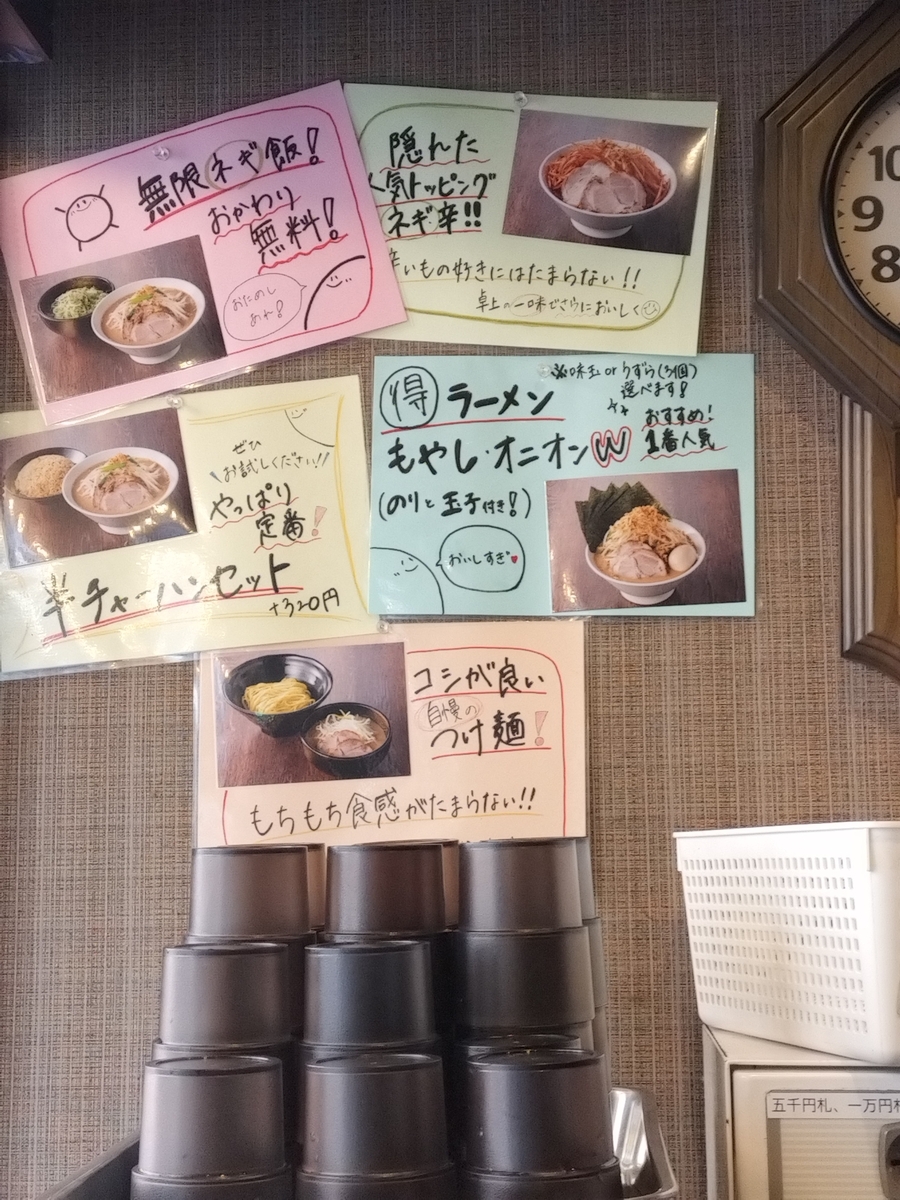 無限ネギ飯!
おかわり
無料!
おためし
あれ!
隠れた
人気トッピング
ネギ辛!!
辛いもの好きにはたまらない!!
卓上の一味でさらにおいしく
得 ラーメン
※味玉 or うずら(3個)
選べます!
もやし・オニオンW
おすすめ!
1番人気
(のりと玉子付き!)
おいしすぎ
ぜひ
お試しください!!
やっぱり
定番!
半チャーハンセット
+320円
コシが良い
自慢の
つけ麺!
もちもち食感がたまらない!!
10
9
8
五千円札、一万円札